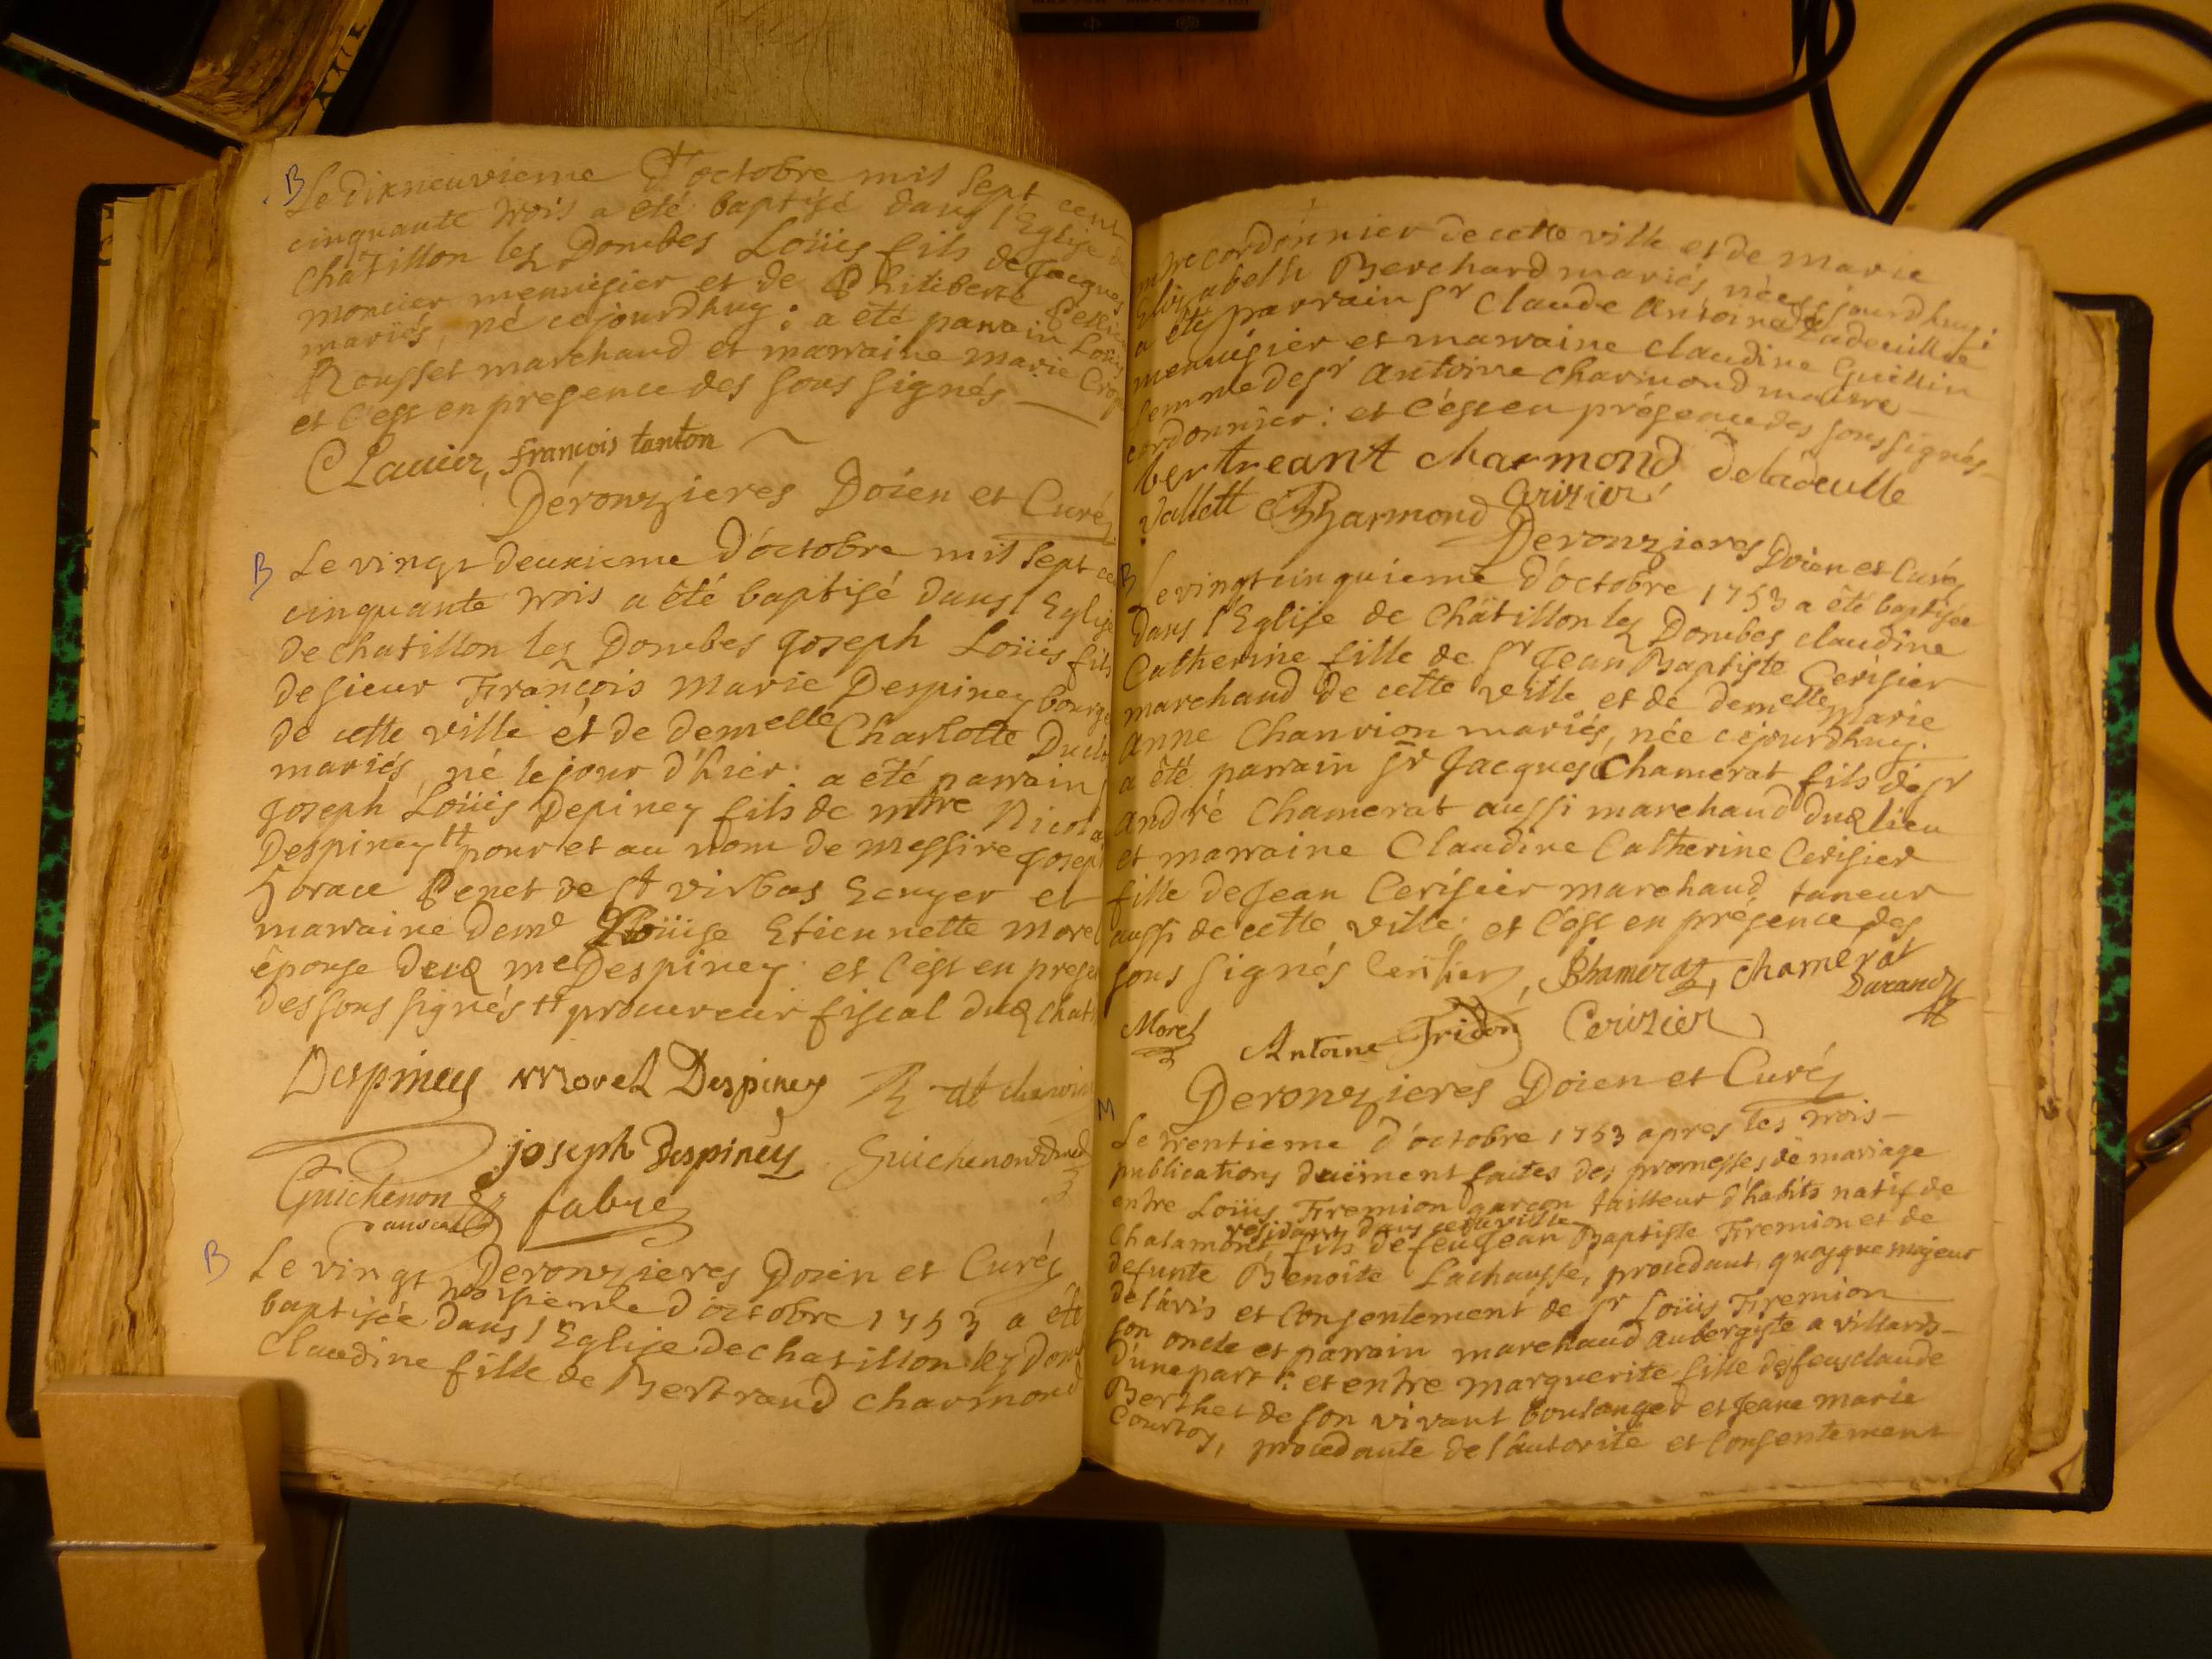 B Le dixneuvieme d'octobre mil sept cent
cinquante trois a été baptisé dans l'Eglise de
chatillon lez Dombes Loüis fils de Jacques
moncier menuisier et de Philiberte
mariés, né cejourdhuy : a été parrain Loüis
Rousset marchand et marraine marie
et c'est en presence des sous signés
Clavier, françois tanton
Déronzieres Doien et Curé
B Le vingt deuxieme d'octobre mil sept ce
cinquante trois a été baptisé dans l'Eglise
de chatillon lez Dombes Joseph Loüis fils
de sieur François Marie Despiney bourge
de cette ville et de demelle Charlotte Duclo
mariés, né le jour d'hier : a été parrain
Joseph Loüis Depiney fils de mtre Nicola
Despiney tt pour et au nom de messire Joseph
horace Penet de st virbas Ecuyer et
marraine deme Loüise Etiennette Morel
épouse dud me Despiney : et c'est en prese
des sous signés tt procureur fiscal dud chati
Despiney Morel Despiney
joseph despiney Guichenon
Guichenon fabre
Deronzieres Doien et Curé
B Le vingt troisieme d'octobre 1753 a été
baptisée dans l'Eglise de chatillon lez Dom
Claudine fille de Bertrand charmond
mtre cordonnier de cette ville et de marie
Elisabeth Berchard mariés, née cejourdhuy :
a été parrain sr Claude Antoine Ladeuille
menuisier et marraine claudine Guillin
femme de sr Antoine charmond maitre
cordonnier : et c'est en présence des sous signés
bertreant charmond deladeulle
vallett Charmond Cerizier
Deronzieres Doien et Curé
B Le vingtcinquieme d'octobre 1753 a été baptisée
dans l'Eglise de Chatillon lez Dombes claudine
Catherine fille de sr Jean Baptiste Cerisier
marchand de cette ville et de demelle Marie
Anne Chanrion mariés, née cejourdhuy :
a été parrain sr Jacques Chamerat fils de sr
André Chamerat aussi marchand dud lieu
et marraine Claudine Catherine Cerisier
fille de Jean Cerisier marchand taneur
aussi de cette ville, et c'est en présence des
sous signés Cerisier, Chamerat, chamerat
Durand
Morel Antoine Fridon Cerizier
Deronzieres Doien et Curé
M Le trentieme d'octobre 1753 apres les trois
publications duëment faites des promesses de mariage
entre Loüis Fremion garçon tailleur d'habits natif de
residant dans cette ville
Chalamont, fils de feu Jean Baptiste Fremion et de
defunte Benoite Lachausse, procedant, quoyque majeur
de l'avis et consentement de sr Loüis Fremion
son oncle et parrain marchand aubergiste a villars
d'une part : et entre marguerite fille des feus claude
Berthet de son vivant boulanger et Jeane Marie
Courtoy, procedante de l'autorité et consentement